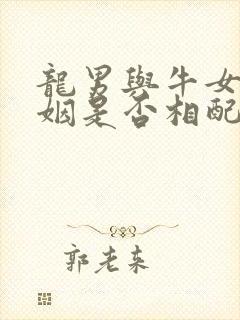 龍男與牛女
姻是否相配
郭老来